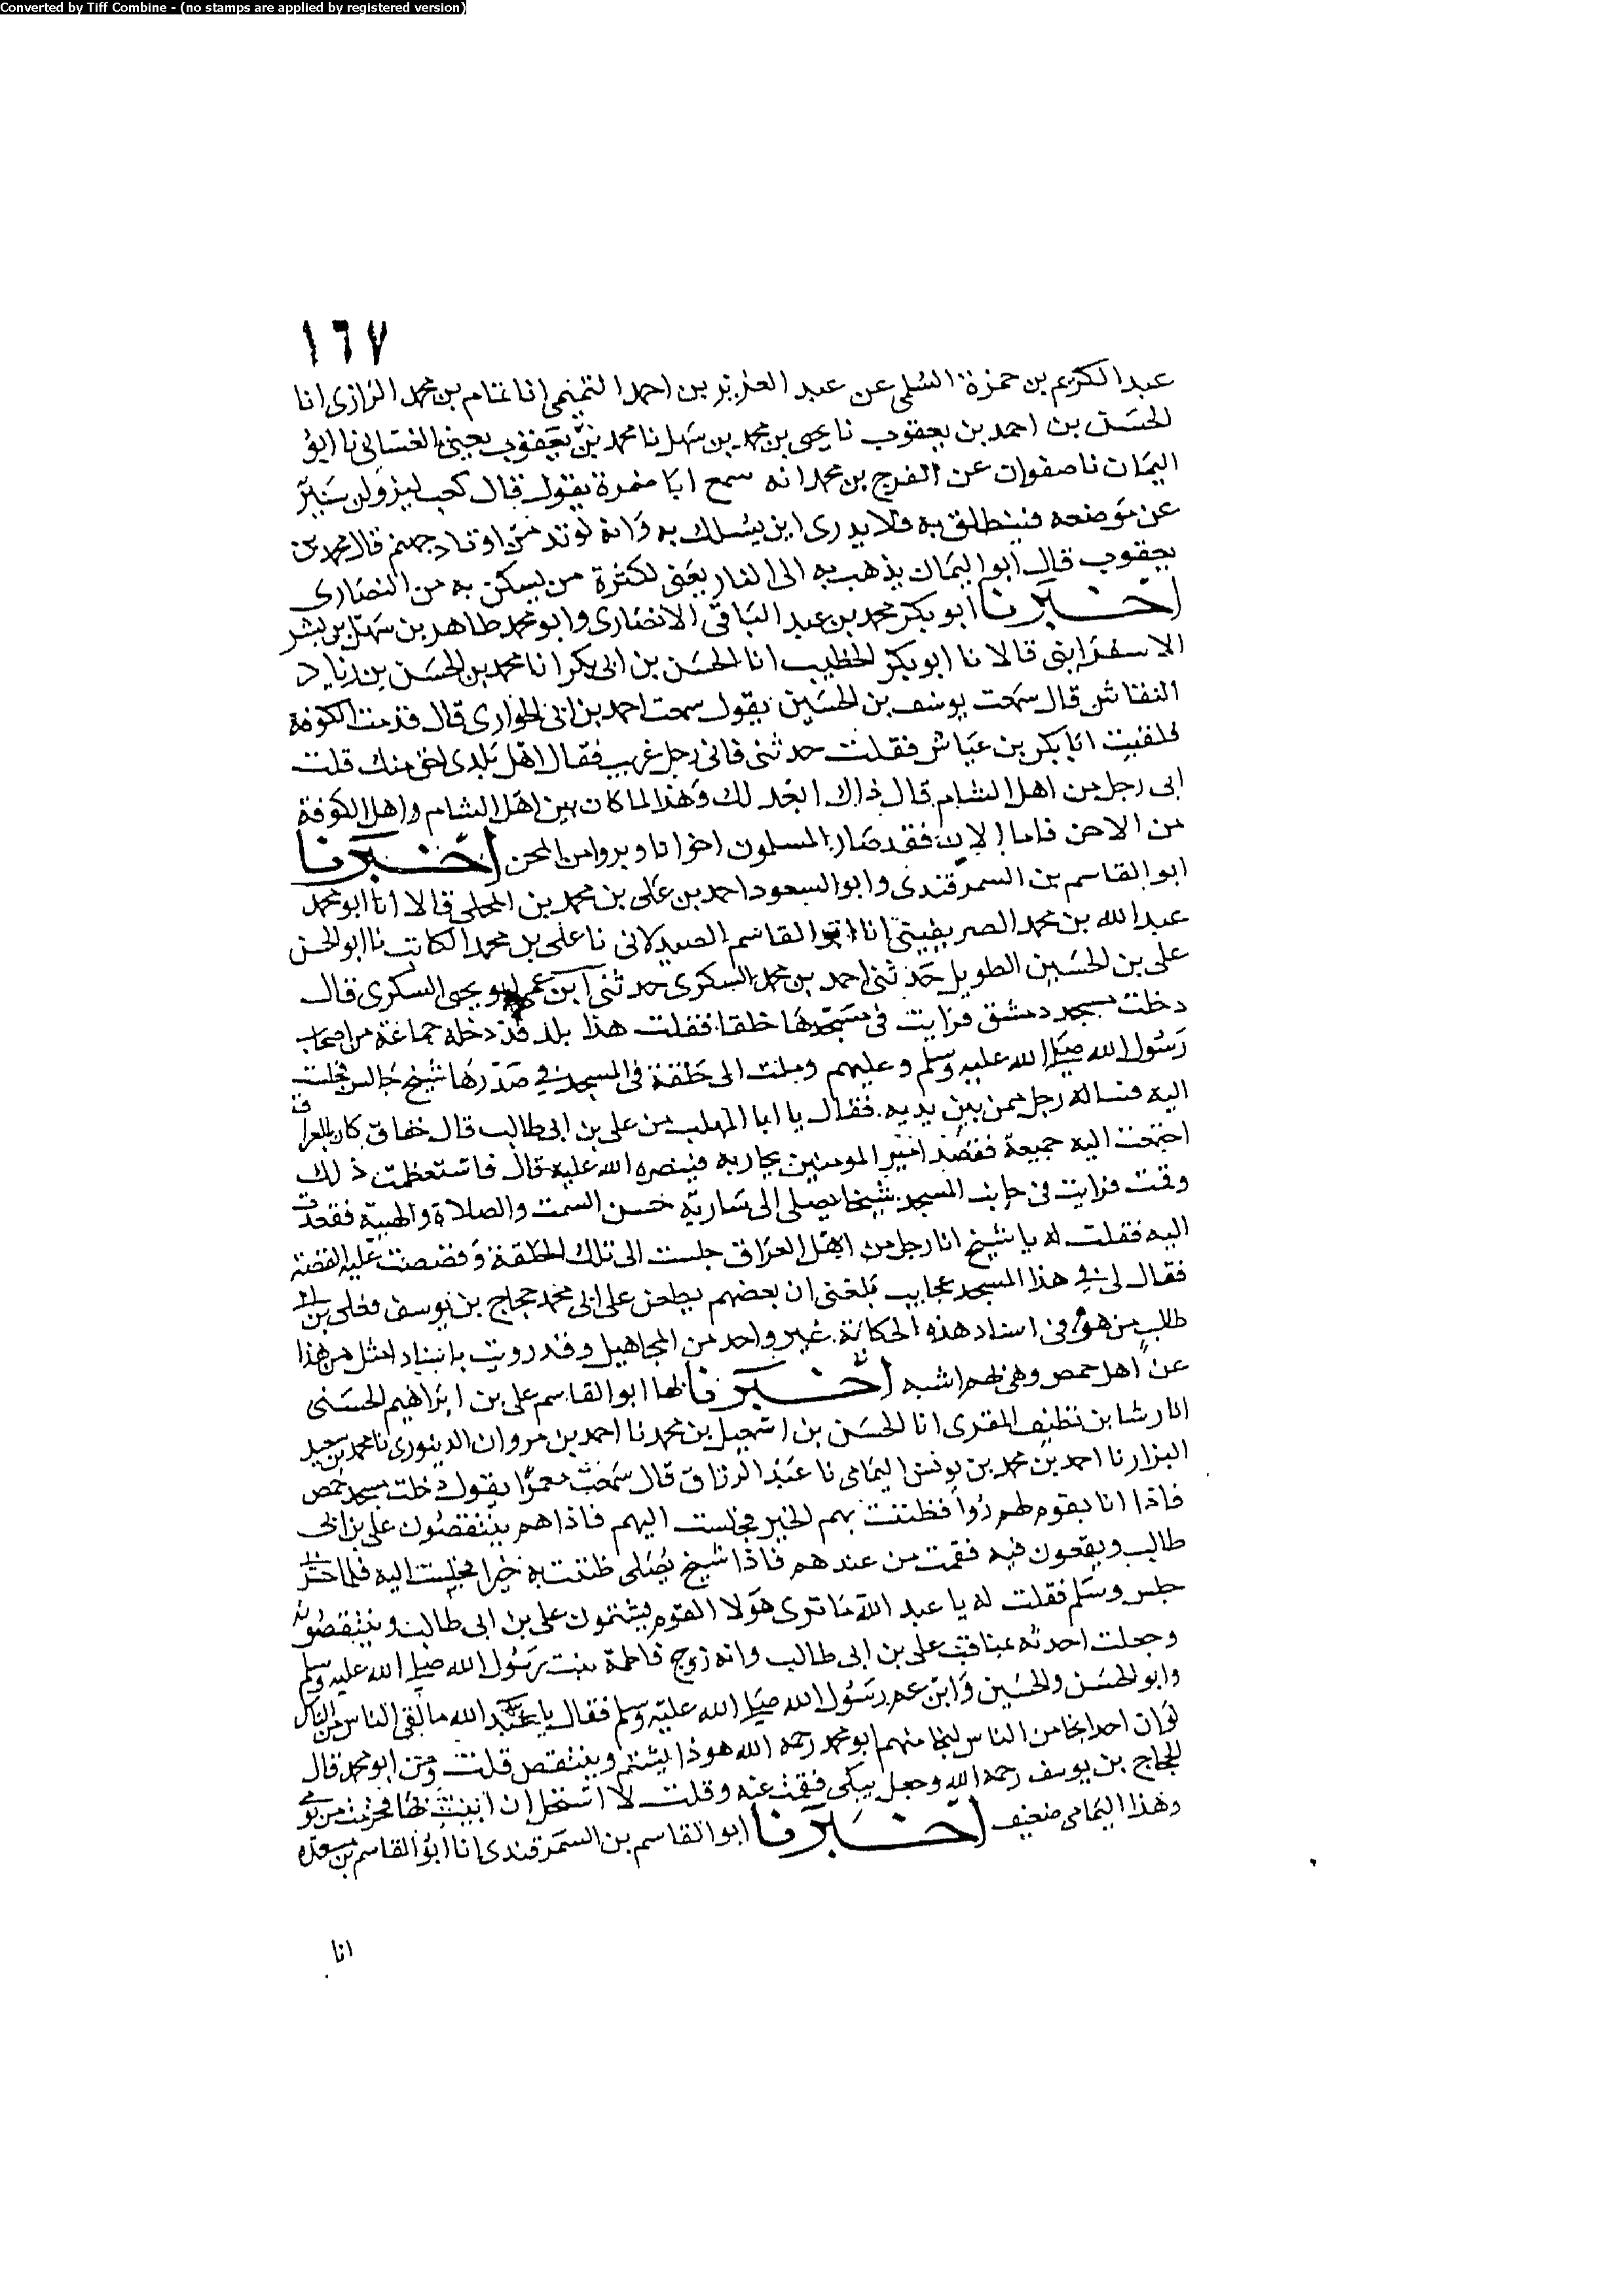 Converted by Tiff Combine - (no stamps are applied by registered version)
١٦٧
عبد الكريم بن حمزة السلمي عن عبد العزيز بن احمد التميمي انا تمام بن محمد الرازي انا
الحسن بن احمد بن يعقوب نا يحيى بن محمد بن سهل نا محمد بن يعقوب يعني الغساني نا ابو
اليمان نا صفوان عن الفرج بن محمد انه سمع ابا ضمرة يقول قال كعب ليزولن سنير
عن موضعه فينطلق به فلا يدرى اين يسلك به وانه لوتد من اوتاد جهنم قال محمد بن
يعقوب قال ابو اليمان يذهب به الى النار يعني لكثرة من يسكن به من النصارى
اخبرنا ابو بكر محمد بن عبد الباقي الانصاري وابو محمد طاهر بن سهل بن بشر
الاسفرايني قالا نا ابو بكر الخطيب انا الحسن بن ابي بكر انا محمد بن الحسن بن زياد
النقاش قال سمعت يوسف بن الحسين يقول سمعت احمد بن ابي الحواري قال قدمت الكوفة
فلقيت ابا بكر بن عياش فقلت حدثني فاني رجل غريب فقال اهل بلدي احق منك قلت
اني رجل من اهل الشام قال ذاك ابعد لك وهذا لما كان بين اهل الشام واهل الكوفة
من الاحن فاما الان فقد صار المسلمون اخوانا وبروا من المحن اخبرنا
ابو القاسم بن السمرقندي وابو السعود احمد بن علي بن محمد بن المجلي قالا انا ابو محمد
عبد الله بن محمد الصريفيني انا ابو القاسم الصيدلاني نا علي بن محمد الكاتب نا ابو الحسن
علي بن الحسين الطويل حدثني احمد بن محمد السكري حدثني ابن عمي ابو يحيى السكري قال
دخلت مسجد دمشق فرايت في مسجدها حلقا فقلت هذا بلد قد دخله جماعة من اصحاب
رسول الله صلى الله عليه وسلم وعليهم وملت الى حلقة في المسجد في صدرها شيخ جالس فجلست
اليه فساله رجل ممن بين يديه فقال يا ابا المهلب من علي بن ابي طالب قال خفاق كان بالعراق
اجتمعت اليه جميعة فقصد امير المومنين يحاربه فينصره الله عليه قال فاستعظمت ذلك
وقمت فرايت في جانب المسجد شيخا يصلي الى سارية حسن السمت والصلاة والهيبة فقعدت
اليه فقلت له يا شيخ انا رجل من اهل العراق جلست الى تلك الحلقة وقصصت عليه القصة
فقال لي في هذا المسجد عجايب بلغني ان بعضهم يطعن على ابي محمد حجاج بن يوسف فعلي بن ابي
طالب من هو في اسناد هذه الحكاية غير واحد من المجاهيل وقد رويت باسناد امثل من هذا
عن اهل حمص وهي بهم اشبه اخبرنا بها ابو القاسم علي بن ابراهيم الحسني
انا رشا بن نظيف المقري انا الحسن بن اسمعيل بن محمد نا احمد بن مروان الدينوري نا محمد بن سعيد
البزار نا احمد بن محمد بن يونس اليمامي نا عبد الرزاق قال سمعت معمرا يقول دخلت مسجد حمص
فاذا انا بقوم لهم رُوا فظننت بهم الخير فجلست اليهم فاذا هم ينتقصون علي بن ابي
طالب ويقعون فيه فقمت من عندهم فاذا شيخ يصلي ظننت به خيرا فجلست اليه فلما
جلس وسلم فقلت له يا عبد الله ما ترى هولا القوم يشتمون علي بن ابي طالب وينتقصونه
وجعلت احدثه بمناقب علي بن ابي طالب وانه زوج فاطمة بنت رسول الله صلى الله عليه وسلم
وابو الحسن والحسين وابن عم رسول الله صلى الله عليه وسلم فقال يا عبد الله ما لقي الناس من الناس
لو ان احدا نجا من الناس لنجا منهم ابو محمد رحمه الله هوذا يشتم وينتقص قلت ومن ابو محمد قال
الحجاج بن يوسف رحمه الله وجعل يبكي فقمت عنه وقلت لا استحل ان ابيت بها فخرجت من يومي
وهذا اليمامي ضعيف اخبرنا ابو القاسم بن السمرقندي انا ابو القاسم بن مسعدة
انا